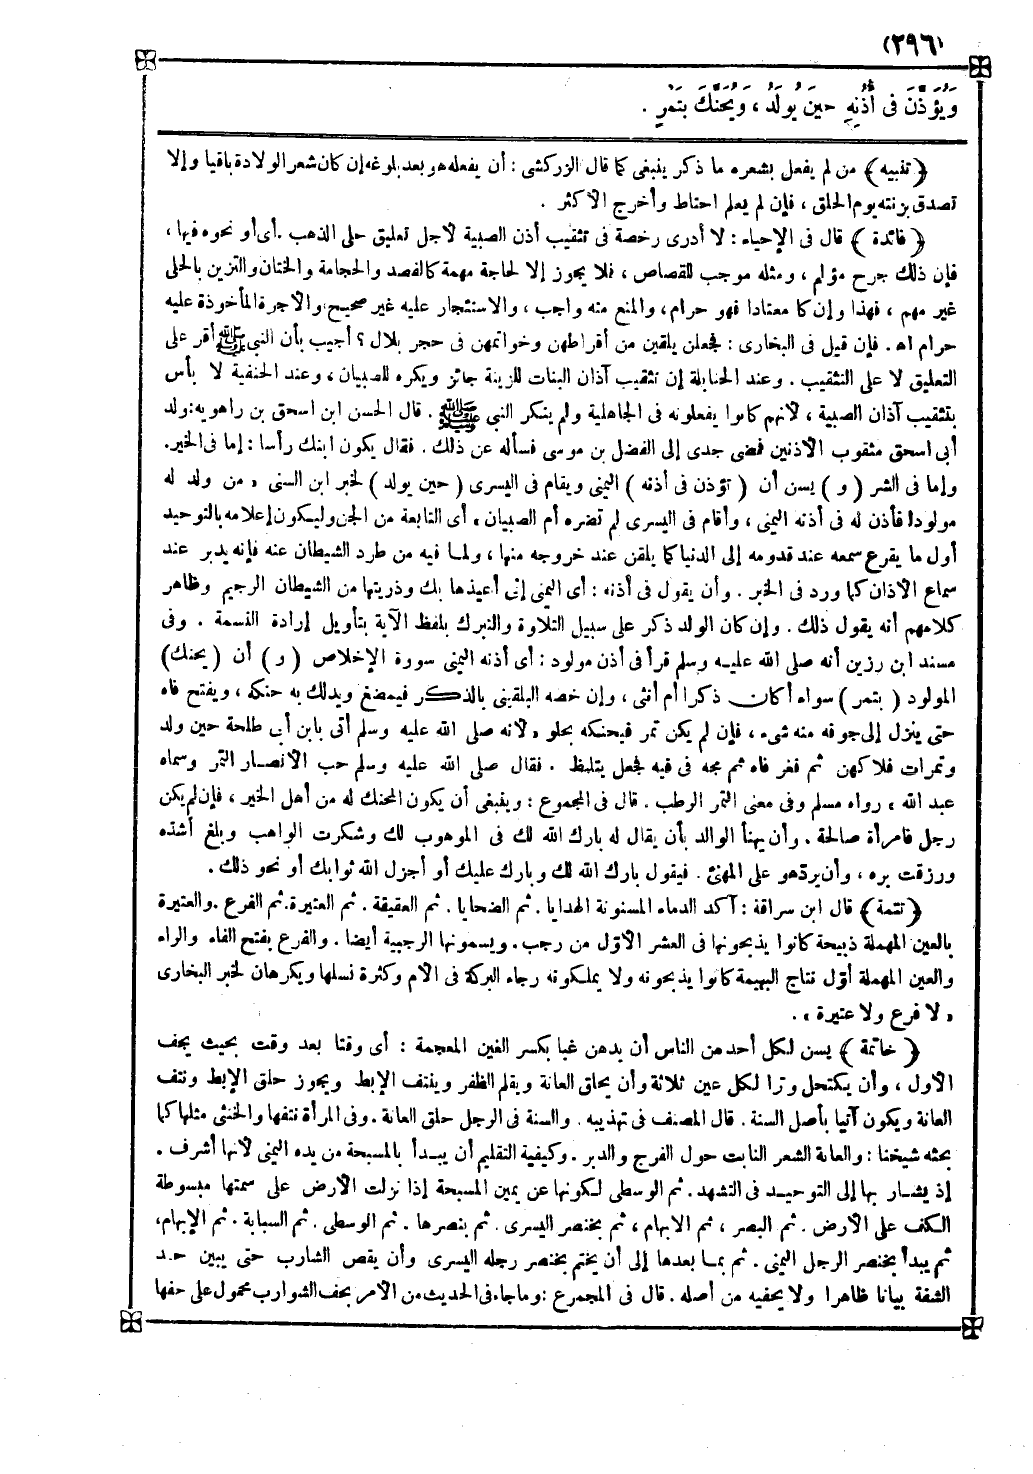 (٢٩٦)
وَيُؤَذَّنَ فى أُذُنِهِ حِينَ يُولَدُ ، وَيُحَنَّكَ بِتَمْرٍ .
﴿ تنبيه ﴾ من لم يفعل بشعره ما ذكر ينبغى كما قال الزركشى : أن يفعله هو بعد بلوغه إن كان شعر الولادة باقيا وإلا
تصدق بزنته يوم الحلق ، فإن لم يعلم احتاط وأخرج الأكثر .
﴿ فائدة ﴾ قال فى الإحياء : لا أدرى رخصة فى تثقيب أذن الصبية لأجل تعليق حلى الذهب . أى أو نحوه فيها ،
فإن ذلك جرح مؤلم ، ومثله موجب للقصاص ، فلا يجوز إلا لحاجة مهمة كالفصد والحجامة والختان والتزين بالحلى
غير مهم ، فهذا وإن كا معتادا فهو حرام ، والمنع منه واجب ، والاستئجار عليه غير صحيح والأجرة المأخوذة عليه
حرام اه . فإن قيل فى البخارى : فجعلن يلقين من أقراطهن وخواتمهن فى حجر بلال ؟ أجيب بأن النبى ﷺ أقر على
التعليق لا على التثقيب . وعند الحنابلة إن تثقيب آذان البنات للزينة جائز ويكره للصبيان ، وعند الحنفية لا بأس
بتثقيب آذان الصبية ، لأنهم كانوا يفعلونه فى الجاهلية ولم ينكر النبى ﷺ . قال الحسن ابن اسحق بن راهويه : ولد
أبى اسحق مثقوب الأذنين فمضى جدى إلى الفضل بن موسى فسأله عن ذلك . فقال يكون ابنك رأسا : إما فى الخير .
وإما فى الشر ( و ) يسن أن ( تؤذن فى أذنه ) اليمنى ويقام فى اليسرى ( حين يولد ) لخبر ابن السنى « من ولد له
مولودا فأذن له فى أذنه اليمنى ، وأقام فى اليسرى لم تضره أم الصبيان » أى التابعة من الجن وليكون إعلامه بالتوحيد
أول ما يقرع سمعه عند قدومه إلى الدنيا كما يلقن عند خروجه منها ، ولما فيه من طرد الشيطان عنه فإنه يدبر عند
سماع الأذان كما ورد فى الخبر . وأن يقول فى أذنه : أى اليمنى إنى أعيذها بك وذريتها من الشيطان الرجيم وظاهر
كلامهم أنه يقول ذلك . وإن كان الولد ذكر على سبيل التلاوة والتبرك بلفظ الآية بتأويل إرادة النسمة . وفى
مسند ابن رزين أنه صلى الله عليه وسلم قرأ فى أذن مولود : أى أذنه اليمنى سورة الإخلاص ( و ) أن ( يحنك )
المولود ( بتمر ) سواء أكان ذكرا أم أنثى ، وإن خصه البلقينى بالذكر فيمضغ ويدلك به حنكه ، ويفتح فاه
حتى ينزل إلى جوفه منه شىء ، فإن لم يكن تمر فيحنكه بحلو « لأنه صلى الله عليه وسلم أتى بابن أبى طلحة حين ولد
وتمرات فلاكهن ثم فغر فاه ثم مجه فى فيه فجعل يتلمظ . فقال صلى الله عليه وسلم حب الأنصار التمر وسماه
عبد الله » رواه مسلم وفى معنى التمر الرطب . قال فى المجموع : وينبغى أن يكون المحنك له من أهل الخير ، فإن لم يكن
رجل فامرأة صالحة . وأن يهنأ الوالد بأن يقال له بارك الله لك فى الموهوب لك وشكرت الواهب وبلغ أشده
ورزقت بره ، وأن يرد هو على المهنئ . فيقول بارك الله لك وبارك عليك أو أجزل الله ثوابك أو نحو ذلك .
﴿ تتمة ﴾ قال ابن سراقة : آكد الدماء المسنونة الهدايا . ثم الضحايا . ثم العقيقة . ثم العتيرة . ثم الفرع . والعتيرة
بالعين المهملة ذبيحة كانوا يذبحونها فى العشر الأول من رجب . ويسمونها الرجبية أيضا . والفرع بفتح الفاء والراء
والعين المهملة أول نتاج البهيمة كانوا يذبحونه ولا يملكونه رجاء البركة فى الأم وكثرة نسلها ويكرهان لخبر البخارى
« لا فرع ولا عتيرة » .
﴿ خاتمة ﴾ يسن لكل أحد من الناس أن يدهن غبا بكسر الغين المعجمة : أى وقتا بعد وقت بحيث يجف
الأول ، وأن يكتحل وترا لكل عين ثلاثة وأن يحلق العانة ويقلم الظفر وينتف الإبط ويجوز حلق الإبط ونتف
العانة ويكون آتيا بأصل السنة . قال المصنف فى تهذيبه . والسنة فى الرجل حلق العانة . وفى المرأة نتفها والخنثى مثلها كما
بحثه شيخنا : والعانة الشعر النابت حول الفرج والدبر . وكيفية التقليم أن يبدأ بالمسبحة من يده اليمنى لأنها أشرف .
إذ يشار بها إلى التوحيد فى التشهد . ثم الوسطى لكونها عن يمين المسبحة إذا نزلت الأرض على سمتها مبسوطة
الكف على الأرض . ثم البنصر ، ثم الابهام ، ثم بخنصر اليسرى . ثم بنصرها . ثم الوسطى . ثم السبابة . ثم الإبهام ،
ثم يبدأ بخنصر الرجل اليمنى . ثم بما بعدها إلى أن يختم بخنصر رجله اليسرى وأن يقص الشارب حتى يبين حد
الشفة بيانا ظاهرا ولا يحفيه من أصله . قال فى المجموع : وما جاء فى الحديث من الأمر بحف الشوارب محمول على حفها